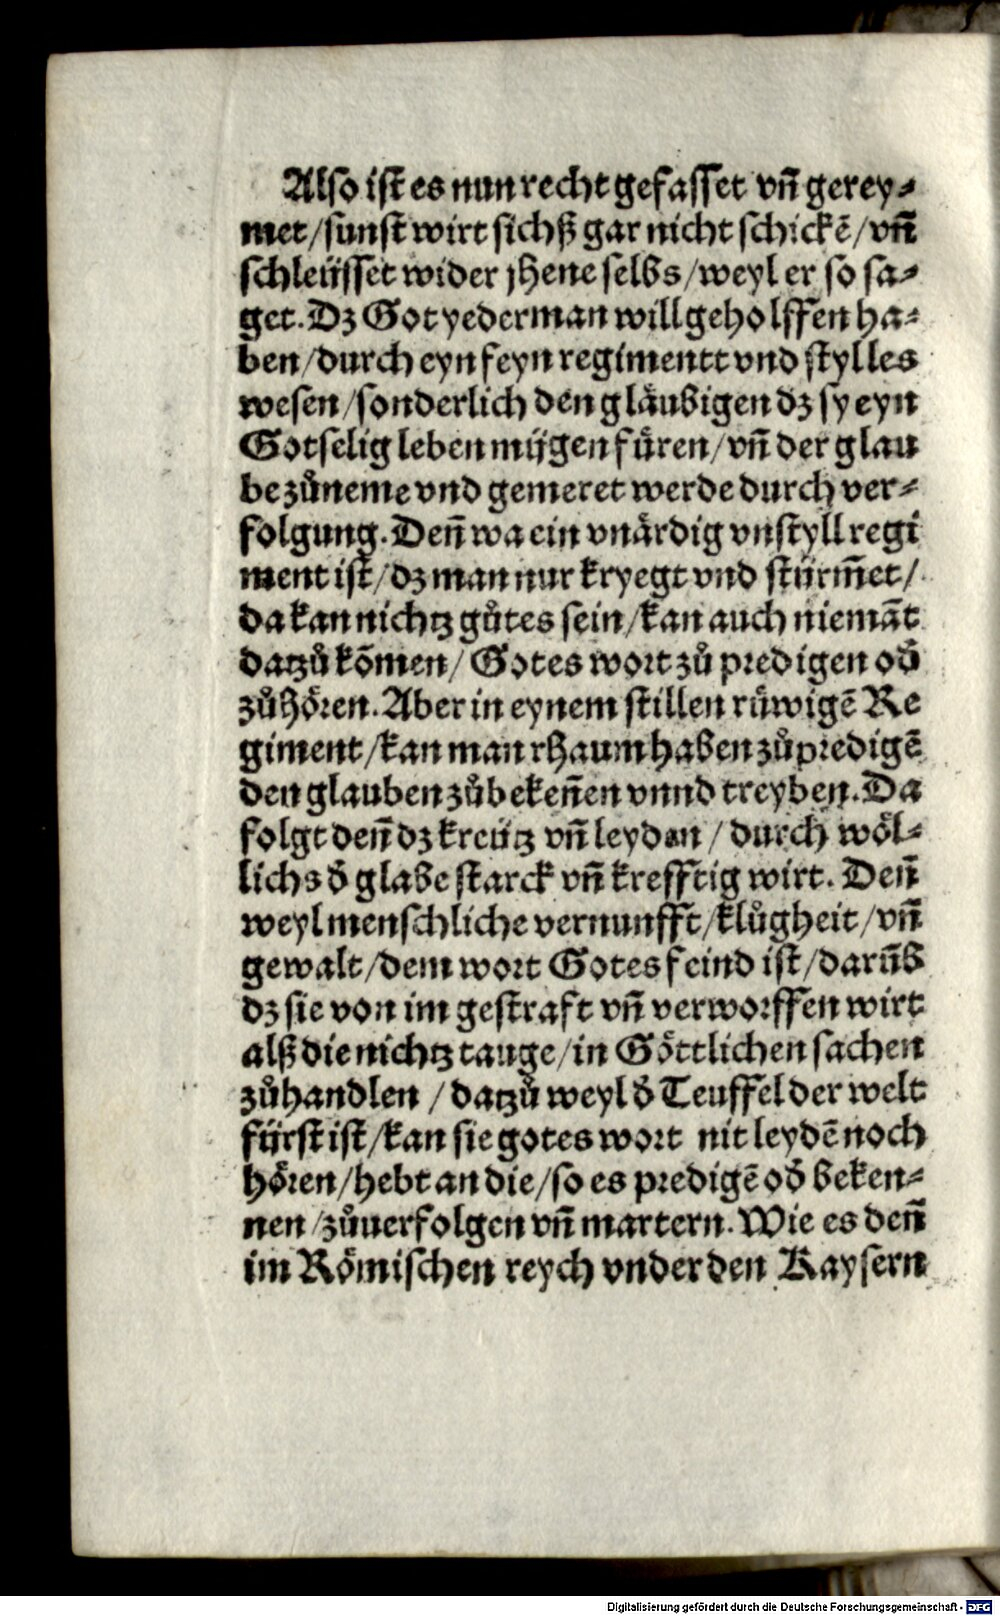 Also ist es nun recht gefasset vñ gerey⸗
met/sunst wirt sichß gar nicht schickē/vñ
schleüsset wider jhene selbs/weyl er so sa⸗
get. Dz Got yederman will geholffen ha⸗
ben/durch eyn feyn regimentt vnd stylles
wesen/sonderlich den gläubigen dz sy eyn
Gotselig leben mügen füren/vñ der glau
be zůneme vnd gemeret werde durch ver⸗
folgung. Deñ wa ein vnärdig vnstyll regi
ment ist/dz man nur kryegt vnd stürm̄et/
da kan nichtz gůtes sein/kan auch niemāt
datzů kōmen/Gotes wort zů predigen od̄
zůhören. Aber in eynem stillen rüwigē Re
giment/kan man rhaum haben zůpredigē
den glauben zůbekeñen vnnd treyben. Da
folgt deñ dz kreütz vñ leyden/durch wöl⸗
lichs d̄ glabe starck vñ krefftig wirt. Deñ
weyl menschliche vernunfft/klůgheit/vñ
gewalt/dem wort Gotes feind ist/darūb
dz sie von im gestraft vñ verworffen wirt
alß die nichtz tauge/in Göttlichen sachen
zůhandlen/datzů weyl d̄ Teuffel der welt
fürst ist/kan sie gotes wort nit leydē noch
hören/hebt an die/so es predigē od̄ beken⸗
nen/zůuerfolgen vñ martern. Wie es deñ
im Römischen reych vnder den Kaysern
Digitalisierung gefördert durch die Deutsche Forschungsgemeinschaft - DFG